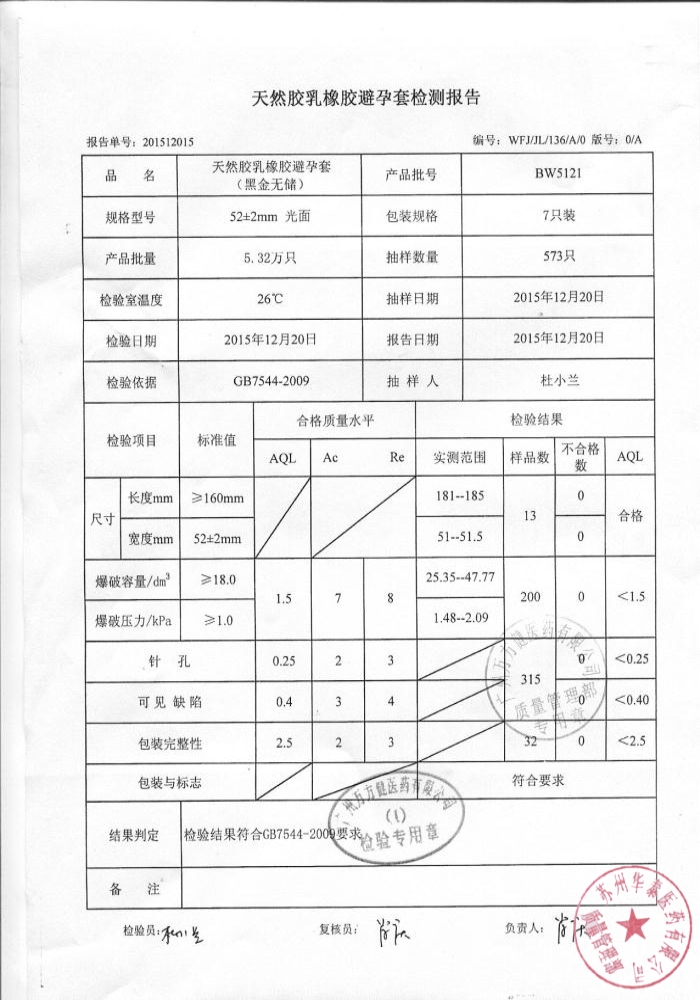 天然胶乳橡胶避孕套检测报告
报告单号：201512015 编号：WFJ/JL/136/A/0 版号：0/A
品 名 天然胶乳橡胶避孕套 产品批号 BW5121
（黑金无储）
规格型号 52±2mm 光面 包装规格 7只装
产品批量 5.32万只 抽样数量 573只
检验室温度 26℃ 抽样日期 2015年12月20日
检验日期 2015年12月20日 报告日期 2015年12月20日
检验依据 GB7544-2009 抽 样 人 杜小兰
检验项目 标准值 合格质量水平 检验结果
AQL Ac Re 实测范围 样品数 不合格数 AQL
尺寸 长度mm ≥160mm 181--185 13 0 合格
宽度mm 52±2mm 51--51.5 0
爆破容量/dm³ ≥18.0 1.5 7 8 25.35--47.77 200 0 <1.5
爆破压力/kPa ≥1.0 1.48--2.09
针 孔 0.25 2 3 315 0 <0.25
可见缺陷 0.4 3 4 0 <0.40
包装完整性 2.5 2 3 32 0 <2.5
包装与标志 符合要求
结果判定 检验结果符合GB7544-2009要求
备 注
检验员： 复核员： 负责人：
广州万方健医药有限公司
质量管理部
专用章
广州万方健医药有限公司
(1)
检验专用章
苏州华泰医药有限公司
质量管理部